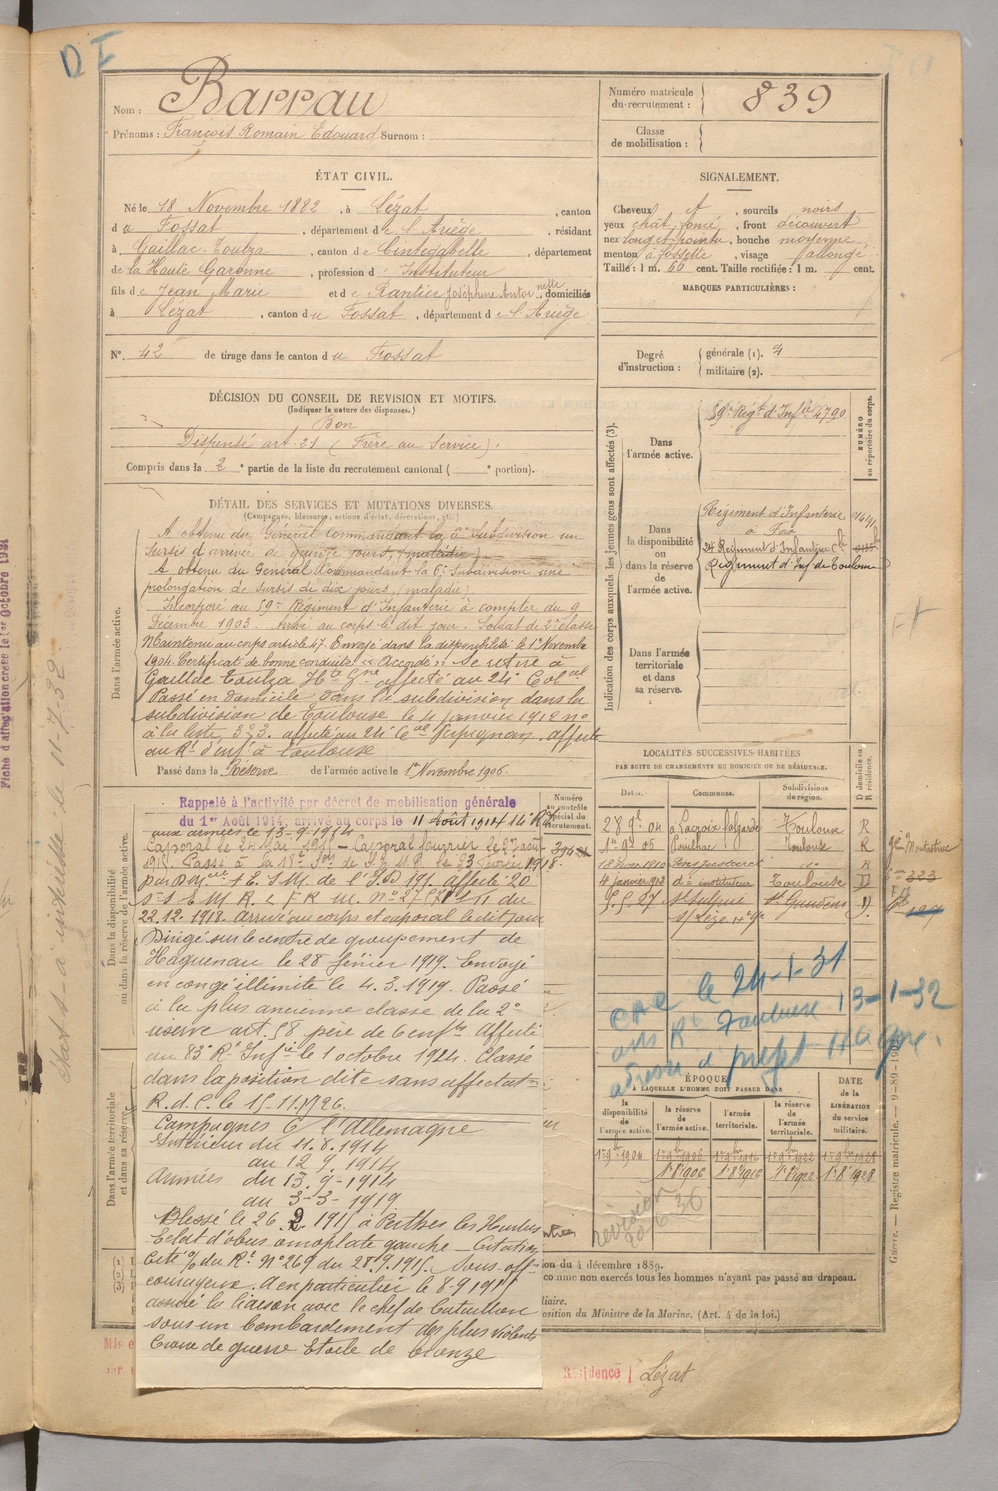 D I
Nom : Barrau
Prénoms : François Romain Edouard Surnom :
Numéro matricule du recrutement : 839
Classe de mobilisation :
ÉTAT CIVIL.
Né le 18 Novembre 1882, à Lézat, canton
du Fossat, département de l'Ariège, résidant
à Gaillac-Toulza, canton de Cintegabelle, département
de la Haute Garonne, profession d'Instituteur
fils de Jean Marie et de Rantier Joséphine Antoinette, domiciliés
à Lézat, canton du Fossat, département de l'Ariège
N° 42 de tirage dans le canton du Fossat
SIGNALEMENT.
Cheveux et, sourcils noirs
yeux chât. foncé, front découvert
nez long et pointu, bouche moyenne
menton à fossette, visage allongé
Taille : 1 m. 66 cent. Taille rectifiée : 1 m. cent.
MARQUES PARTICULIÈRES :
Degré d'instruction : générale (1). 4
militaire (2).
DÉCISION DU CONSEIL DE REVISION ET MOTIFS.
(Indiquer la nature des dispenses.)
Bon
Dispensé art. 21 (Frère au Service).
Compris dans la 2e partie de la liste du recrutement cantonal ( e portion).
DÉTAIL DES SERVICES ET MUTATIONS DIVERSES.
(Campagnes, blessures, actions d'éclat, décorations, etc.)
Dans l'armée active.
A obtenu du Général Commandant la 6e Subdivision un
sursis d'arrivée de quinze jours, (maladie)
A obtenu du Général Commandant la 6e Subdivision une
prolongation de sursis de dix jours, (maladie)
Incorporé au 59e Régiment d'Infanterie à compter du 9
Décembre 1903. Arrivé au corps le dit jour. Soldat de 2e classe
Maintenu au corps article 47. Envoyé dans la disponibilité le 1er Novembre
1904. Certificat de bonne conduite "Accordé". Se retire à
Gaillac toulza Hte Gne affecté au 24e Colal
Passé en domicile dans la subdivision dans la
subdivision de Toulouse le 4 janvier 1912 no
à la liste, 323. affecté au 24e Cal Perpignan. affecté
au Rt d'inf à Toulouse
Passé dans la Réserve de l'armée active le 1er Novembre 1906.
Indication des corps auxquels les jeunes gens sont affectés (3).
Dans l'armée active.
59e Régt d'Infie 4790
NUMÉRO au répertoire du corps.
Dans la disponibilité ou dans la réserve de l'armée active.
Régiment d'Infanterie
à Foix
24 Régiment d'Infanterie Cle
Régiment d'Inf de Toulouse
Dans l'armée territoriale et dans sa réserve.
Dans la disponibilité ou dans la réserve de l'armée active.
Rappelé à l'activité par décret de mobilisation générale
du 1er Août 1914, arrivé au corps le 11 Août 1914 14e R.I.
aux armées le 13-9-1914
Caporal le 24 Mai 1915 - Caporal fourrier le 27 août
22.12.1918. Arrivé au corps et caporal le dit jour
Dirigé sur le centre de groupement de
Haguenau le 28 février 1919. Envoyé
en congé illimité le 4.3.1919. Passé
à la plus ancienne classe de la 2e
réserve art. 58 père de 6 enfts. Affecté
au 83e Rt Infie le 1 octobre 1924. Classé
dans la position dite sans affectatn
R.d.C. le 15-11-1926.
Campagnes C l'Allemagne
Intérieur du 11.8.1914
au 12 9.1914
Armées du 13-9-1914
au 3-3-1919
Blessé le 26 2 1915 à Perthes les Hurlus
Eclat d'obus omoplate gauche - Citation
Cité o/ du Rt No 269 du 28.9.1915. Sous-off-
courageux. A en particulier le 8-9 1915
assuré la liaison avec le chef de bataillon
sous un bombardement des plus violents
Croix de guerre Etoile de bronze
Dans l'armée territoriale et dans sa réserve.
Numéro au contrôle spécial du recrutement.
LOCALITÉS SUCCESSIVES HABITÉES
PAR SUITE DE CHANGEMENTS DE DOMICILE OU DE RÉSIDENCE.
Dates. Communes. Subdivisions de région. D domicile ou R résidence.
28 9e 04 à Lacroix falgarde Toulouse R
Toulouse R
4 janvier 1913 de instituteur Toulouse D
9.5.27 St Sulpice St Gaudens D.
s/ Lèze Hte Gne
CAE le 24-1-31
avis Rt Toulouse 13-1-32
adresse d préfet Hte Gne.
ÉPOQUE
À LAQUELLE L'HOMME DOIT PASSER DANS
la disponibilité de l'armée active. la réserve de l'armée active. l'armée territoriale. la réserve de l'armée territoriale. DATE de la LIBÉRATION du service militaire.
1er 9bre 1904 1er 9bre 1906 1er 9bre 1916 1er 9bre 1922 1er 9bre 1928
1er 8bre 1906 1er 8bre 1916 1er 8bre 1922 1er 8bre 1928
révision
on du 4 décembre 1889.
comme non exercés tous les hommes n'ayant pas passé au drapeau.
liaire.
position du Ministre de la Marine. (Art. 4 de la loi.)
Résidence Lézat
Guerre. — Registre matricule. — 9-89-190